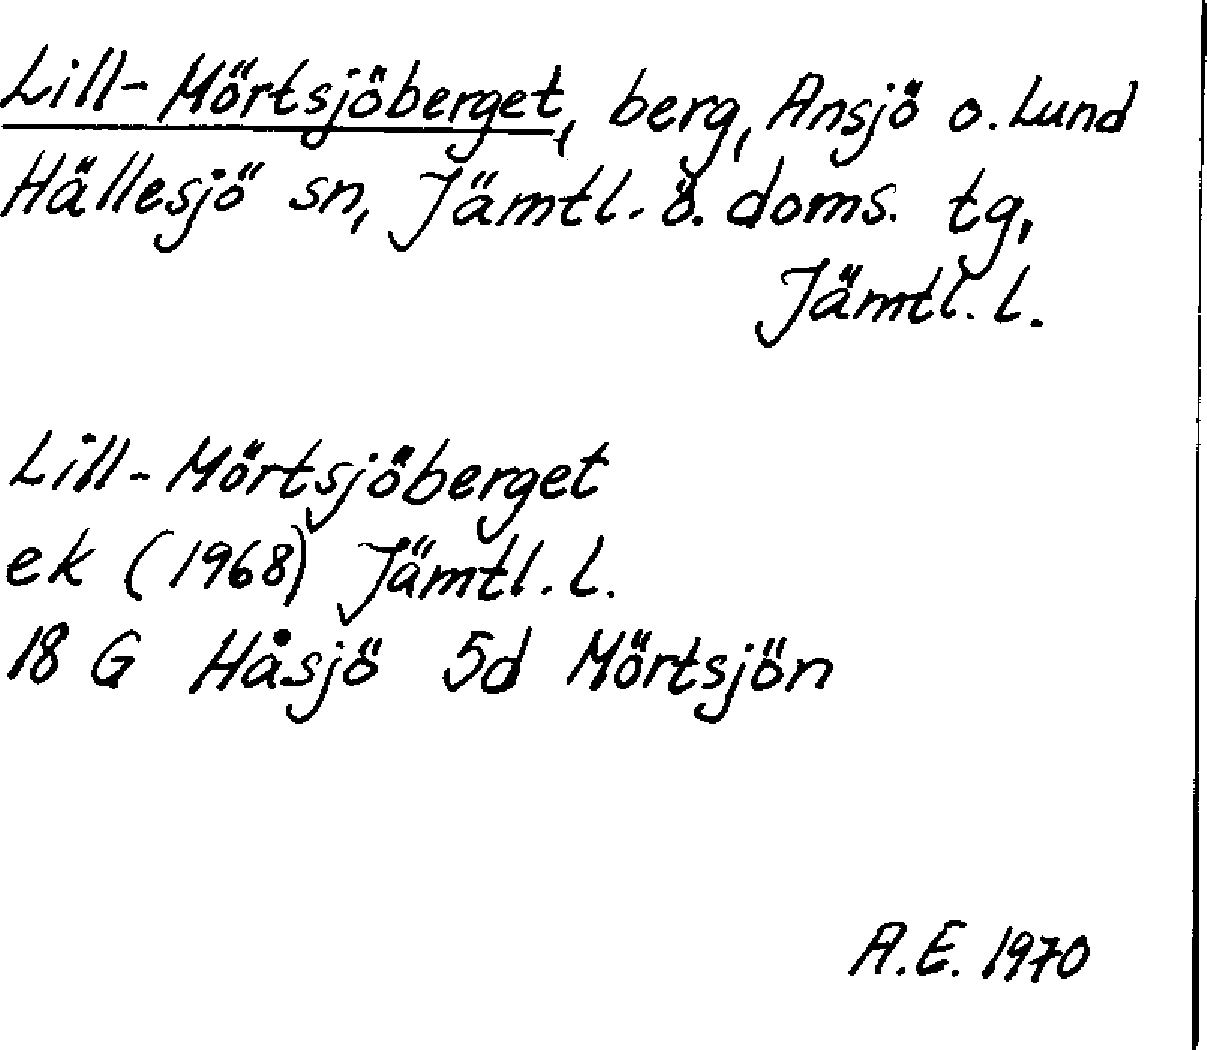 Lill-Mörtsjöberget, berg, Ansjö o. Lund
Hällesjö sn, Jämtl. ö. doms. tg,
Jämtl. l.
Lill-Mörtsjöberget
ek (1968) Jämtl. l.
18 G Håsjö 5d Mörtsjön
A.E. 1970